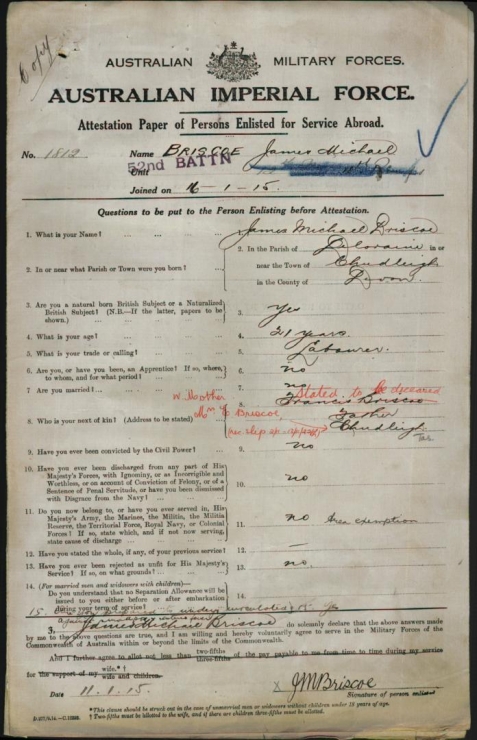 Copy
AUSTRALIAN MILITARY FORCES.
AUSTRALIAN IMPERIAL FORCE.
Attestation Paper of Persons Enlisted for Service Abroad.
No. 1812 Name BRISCOE James Michael
Unit 52nd BATTN
Joined on 16-1-15.
Questions to be put to the Person Enlisting before Attestation.
1. What is your Name? ... 1. James Michael Briscoe
2. In or near what Parish or Town were you born? ... 2. In the Parish of Deloraine in or
near the Town of Chudleigh
in the County of Devon.
3. Are you a natural born British Subject or a Naturalized
British Subject? (N.B.—If the latter, papers to be
shown.) ... 3. Yes
4. What is your age? ... 4. 21 years
5. What is your trade or calling? ... 5. Labourer.
6. Are you, or have you been, an Apprentice? If so, whom,
to whom, and for what period? ... 6. no
7. Are you married? ... 7. no
Stated to be deceased
8. Who is your next of kin? (Address to be stated) 8. Francis Briscoe
Mother
Mrs Briscoe, Father
Chudleigh
Tas
9. Have you ever been convicted by the Civil Power? ... 9. no
10. Have you ever been discharged from any part of His
Majesty's Forces, with Ignominy, or as Incorrigible and
Worthless, or on account of Conviction of Felony, or of a
Sentence of Penal Servitude, or have you been dismissed
with Disgrace from the Navy? ... 10. no
11. Do you now belong to, or have you ever served in, His
Majesty's Army, the Marines, the Militia, the Militia
Reserve, the Territorial Force, Royal Navy, or Colonial
Forces? If so, state which, and if not now serving,
state cause of discharge ... 11. no Area exemption
12. Have you stated the whole, if any, of your previous service? 12. —
13. Have you ever been rejected as unfit for His Majesty's
Service? If so, on what grounds? ... 13. no.
14. (For married men and widowers with children)—
Do you understand that no Separation Allowance will be
issued to you either before or after embarkation
during your term of service? 14.
15. prepared to undergo inoculation Yes
against
I, James Michael Briscoe do solemnly declare that the above answers made
by me to the above questions are true, and I am willing and hereby voluntarily agree to serve in the Military Forces of the
Commonwealth of Australia within or beyond the limits of the Commonwealth.
And I further agree to allot not less than two-fifths three-fifths of the pay payable to me from time to time during my service
for the support of my wife.*† wife and children.
Date 11.1.15. x JMBriscoe
Signature of person enlisted.
*This clause should be struck out in the case of unmarried men or widowers without children under 18 years of age.
† Two-fifths must be allotted to the wife, and if there are children three-fifths must be allotted.